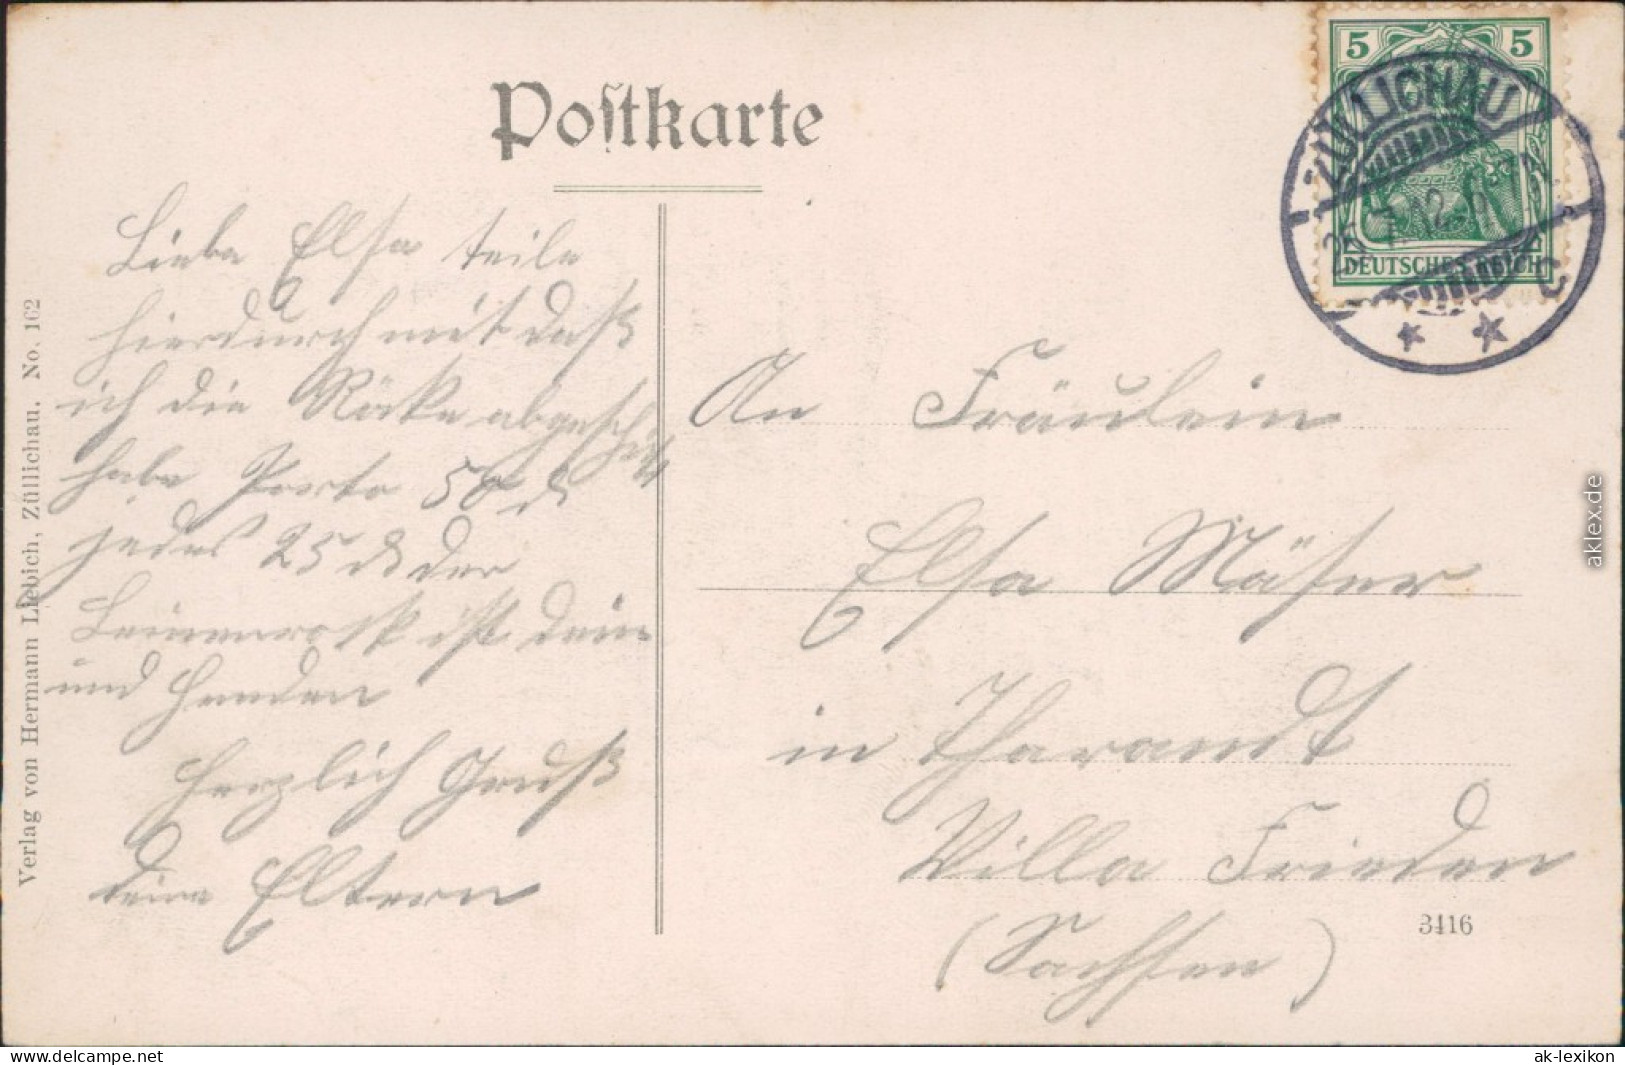 Postkarte
5 5
DEUTSCHES REICH
ZÜLLICHAU
25.7.12. 
c
* *
Liebe Elsa teile
hierdurch mit daß
ich die Röcke abgeschickt
habe Porto 50 d
jedes 25 d der
Leinenrock ist dein
und Hemden
Herzlich Gruß
deine Eltern
An Fräulein
Elsa Mäser
in Tharandt
Villa Frieden
(Sachsen)
3416
Verlag von Hermann Liebich, Züllichau. No. 162
aklex.de
www.delcampe.net
ak-lexikon